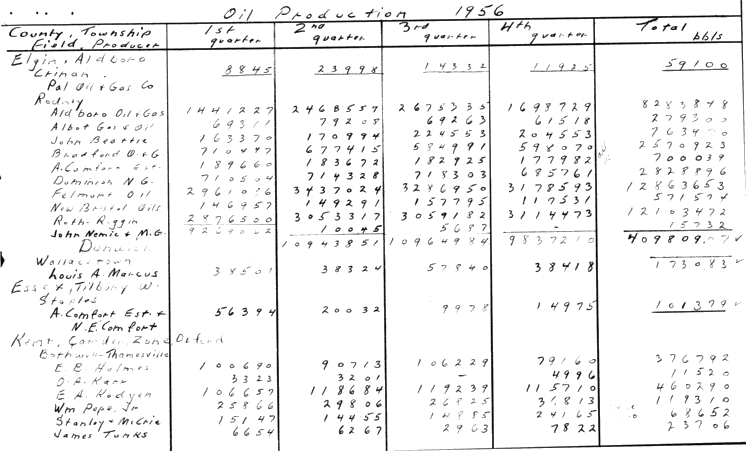 Oil Production 1956
County, Township 1st 2nd 3rd 4th Total
Field, Producer quarter quarter quarter quarter bbls
Elgin, Aldboro
Crinan 8845 23998 14332 11925 59100
Pal Oil & Gas Co
Rodney
Aldboro Oil & Gas 1441227 2468557 2675335 1698729 8283848
Albot Gas & Oil 69311 79208 69263 61518 279300
John Beattie 163370 170994 224553 204553
Bradford O & G 710447 677415 584991 598070 2570923
A. Comfort Est. 189660 183672 182725 177982 700039
Dominion N.G. 710504 714328 718303 685761 2828896
Felmont Oil 2961036 3437024 3286950 3178593 12863653
New Bristol Oils 146957 149291 157795 117531 571574
Roth-Riggin 2876500 3053317 3059182 3114473 12103472
John Nemic & M.G. 9269002 10045 5687 - 15732
Dunwich 10943851 10964984 9837210
Wallacetown 173083 ✓
Louis A. Marcus 38501 38324 57840 38418
Essex, Tilbury W.
Staples
A. Comfort Est. & 56394 20032 9978 14975 101379 ✓
N.E. Comfort
Kent, Camden, Zone, Orford
Bothwell-Thamesville
E. B. Holmes 100690 90713 106229 79160 376792
O. A. Karr 3323 3201 - 4996 11520
E A. Kodgen 106657 118684 119239 115710 460290
Wm Pope, Jr 25866 29806 26825 119310
Stanley & McCrie 15147 14455 14885 24165 68652
James Tunks 6654 6267 2963 7822 23706